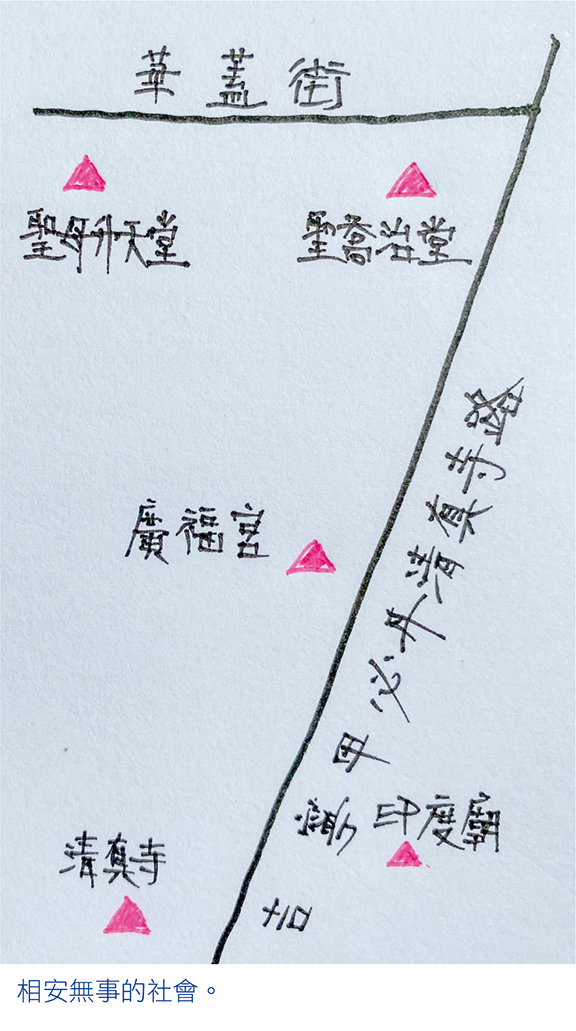 華蓋街
聖母升天堂
聖喬治堂
廣福宮
吉甲必丹清真寺路
印度廟
清真寺
相安無事的社會。